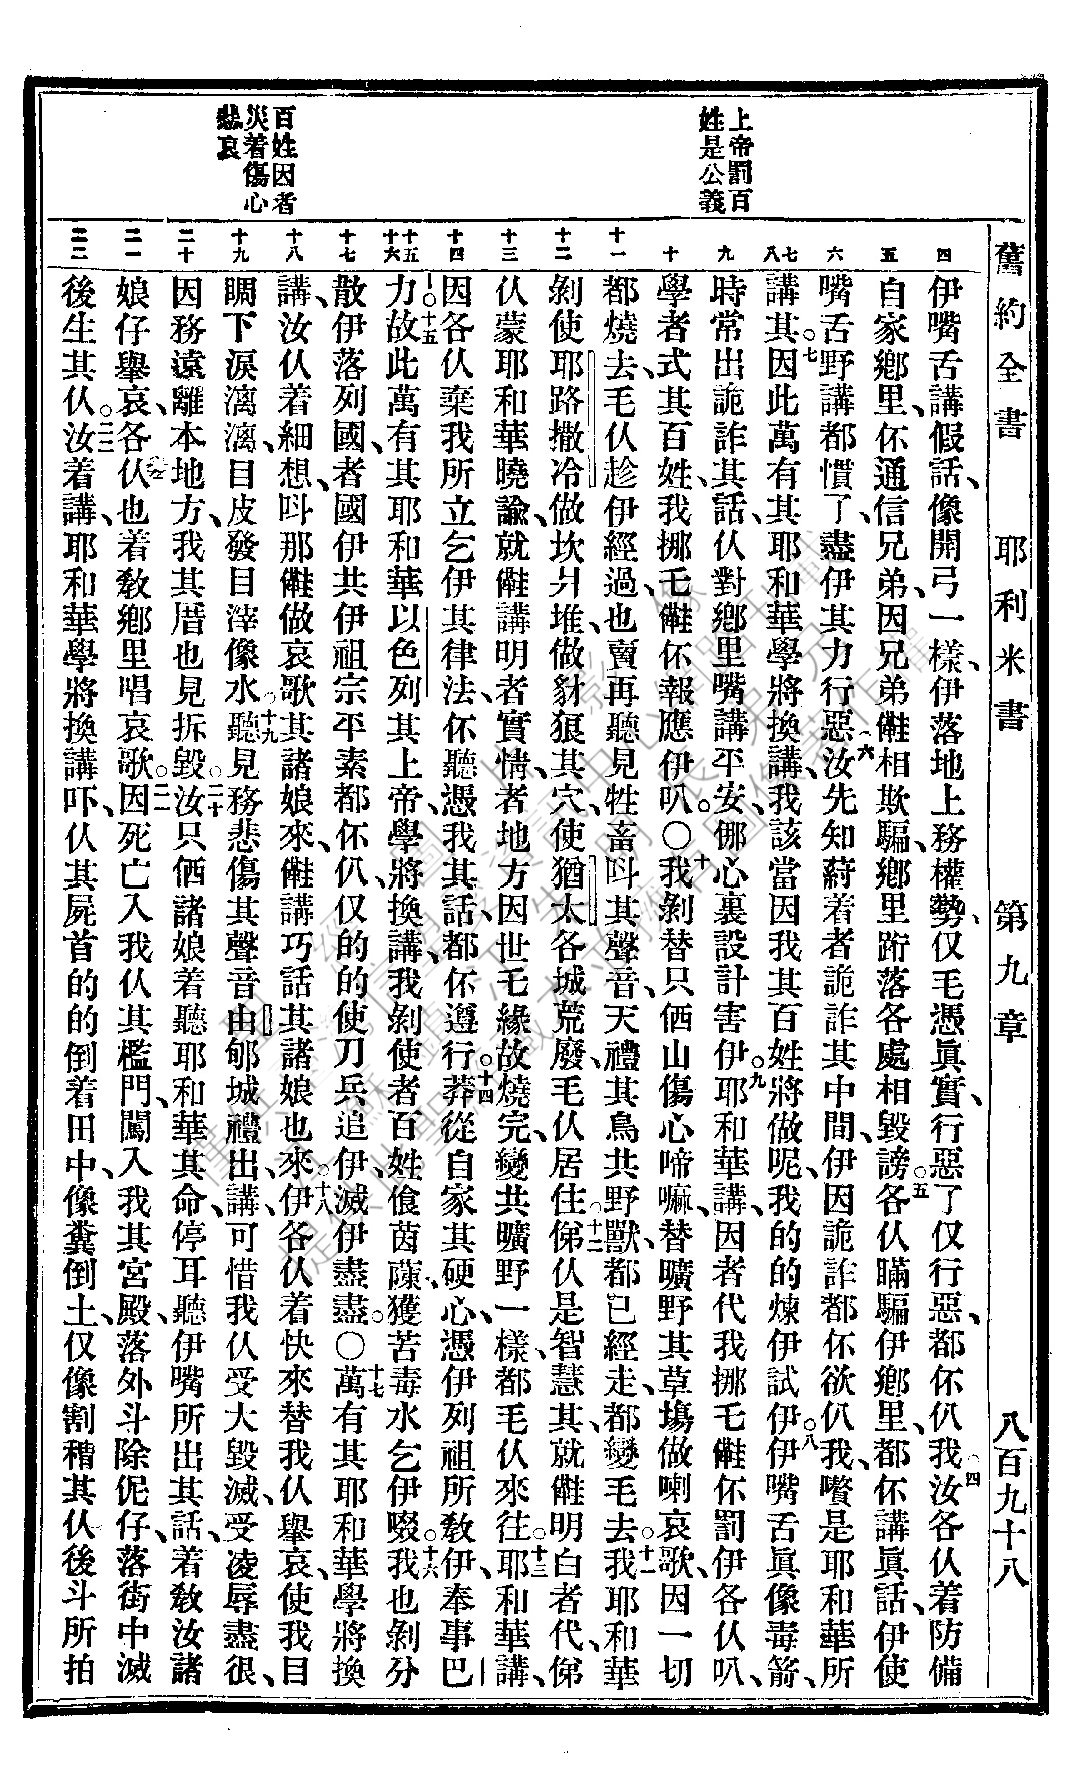 舊約全書 耶利米書 第九章 八百九十八
上帝罰百
姓是公義
百姓因者
災着傷心
悲哀
四
五
六
七
八
九
十
十一
十二
十三
十四
十五
十六
十七
十八
十九
二十
二一
二二
伊嘴舌講假話、像開弓一樣、伊落地上務權勢、仅毛憑眞實、行惡了仅行惡、都伓仈我、四汝各仫着防備
自家鄉里、伓通信兄弟、因兄弟𠆧相欺騙、鄉里跡落各處相毀謗、五各仫瞞騙伊鄉里、都伓講眞話、伊使
嘴舌野講都慣了、盡伊其力行惡、六汝先知蔚着者詭詐其中間、伊因詭詐都伓欲仈我、嚽是耶和華所
講其。七因此萬有其耶和華學將換講、我該當因我其百姓將做呢、我的的煉伊試伊。八伊嘴舌眞像毒箭、
時常出詭詐其話、仫對鄉里嘴講平安、㑚心裏設計害伊。九耶和華講、因者代我挪乇𠆧伓罰伊各仫叭、
學者式其百姓、我挪乇𠆧伓報應伊叭〇十我剝替只㑚山傷心啼嘛、替曠野其草塲做喇哀歌、因一切
都燒去、毛仫趁伊經過、也賣再聽見牲畜呌其聲音、天禮其鳥共野獸、都已經走、都變毛去。十一我耶和華
剝使耶路撒冷做坎爿堆、做豺狼其穴、使猶太各城荒廢、毛仫居住。十二俤仫是智慧其、就𠆧明白者代、俤
仫蒙耶和華曉諭、就𠆧講明者實情、者地方因世乇緣故燒完、變共曠野一樣、都毛仫來往。十三耶和華講、
因各仫棄我所立乞伊其律法、伓聽憑我其話、都伓遵行。十四莽從自家其硬心、憑伊列祖所敎伊、奉事巴
力。十五故此萬有其耶和華以色列其上帝、學將換講、我剝使者百姓飡茵蔯、獲苦毒水乞伊啜。十六我也剝分
散伊落列國、者國伊共伊祖宗平素都伓仈、仅的的使刀兵追伊、滅伊盡盡。〇十七萬有其耶和華學將換
講、汝仫着細想、呌那𠆧做哀歌其諸娘來、𠆧講巧話其諸娘也來。十八伊各仫着快來替我仫舉哀、使我目
睭下淚漓漓、目皮發目滓像水。十九聽見務悲傷其聲音由郇城禮出、講可惜我仫受大毀滅、受凌辱盡很、
因務遠離本地方、我其厝也見拆毀。二十汝只㑚諸娘着聽耶和華其命、停耳聽伊嘴所出其話、着敎汝諸
娘仔舉哀、各仫也着敎鄉里唱哀歌。二一因死亡入我仫其檻門、闖入我其宮殿、落外斗除伲仔、落街中滅
後生其仫。二二汝着講、耶和華學將換講吓、仫其屍首的的倒着田中、像糞倒土、仅像割稽其仫後斗所拍